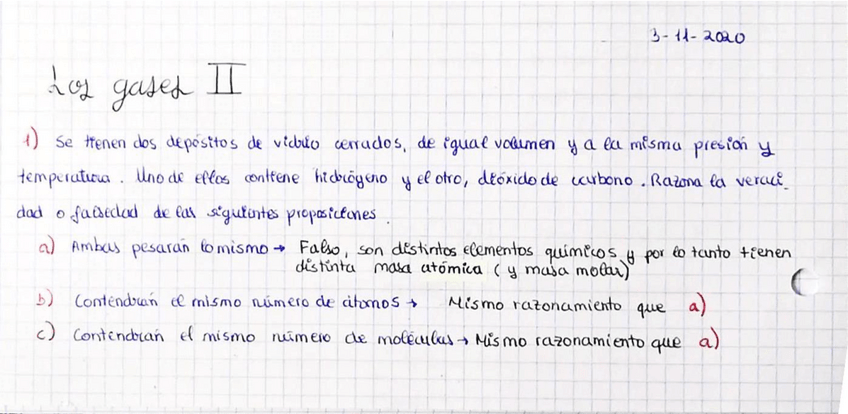 3-11-2020
Los gases II
1) Se tienen dos depósitos de vidrio cerrados, de igual volumen y a la misma presión y
temperatura. Uno de ellos contiene hidrógeno y el otro, dióxido de carbono. Razona la veraci-
dad o falsedad de las siguientes proposiciones.
a) Ambas pesarán lo mismo → Falso, son distintos elementos químicos y por lo tanto tienen
distinta masa atómica (y masa molar)
b) Contendrán el mismo número de átomos → Mismo razonamiento que a)
c) Contendrán el mismo número de moléculas → Mismo razonamiento que a)